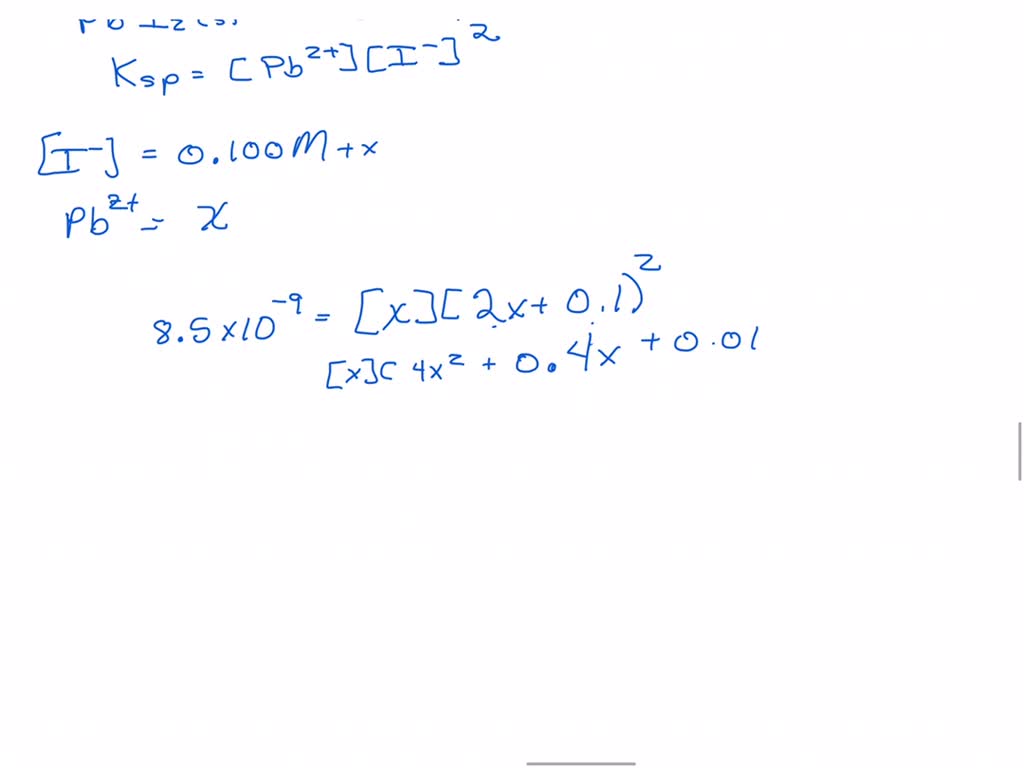 Ksp = [Pb²⁺][I⁻]²
[I⁻] = 0.100M + x
Pb²⁺ = x
8.5 x 10⁻⁹ = [x][2x + 0.1)²
[x]( 4x² + 0.4x + 0.01